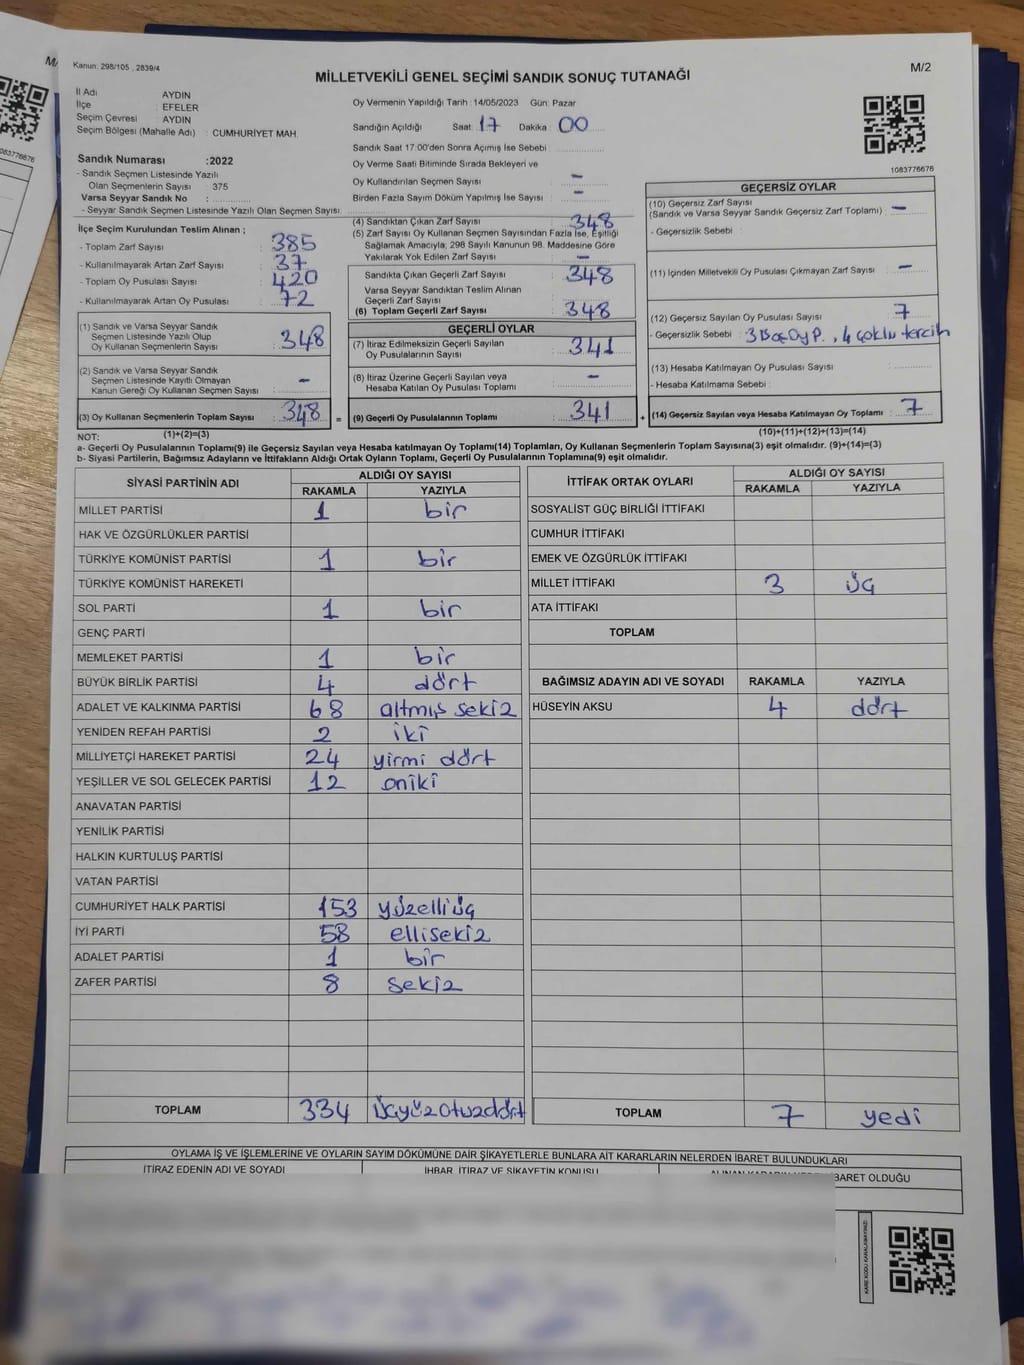 Kanun: 298/105 , 2839/4
M/2
MİLLETVEKİLİ GENEL SEÇİMİ SANDIK SONUÇ TUTANAĞI
İl Adı : AYDIN
İlçe : EFELER
Seçim Çevresi : AYDIN
Seçim Bölgesi (Mahalle Adı) : CUMHURİYET MAH.
Sandık Numarası :2022
- Sandık Seçmen Listesinde Yazılı
Olan Seçmenlerin Sayısı : 375
Varsa Seyyar Sandık No :
- Seyyar Sandık Seçmen Listesinde Yazılı Olan Seçmen Sayısı:
Oy Vermenin Yapıldığı Tarih :14/05/2023 Gün: Pazar
Sandığın Açıldığı Saat: 17 Dakika : 00
Sandık Saat 17:00'den Sonra Açımış İse Sebebi :
Oy Verme Saati Bitiminde Sırada Bekleyen ve
Oy Kullandırılan Seçmen Sayısı : -
Birden Fazla Sayım Döküm Yapılmış İse Sayısı : -
1083776676
İlçe Seçim Kurulundan Teslim Alınan ;
- Toplam Zarf Sayısı : 385
- Kullanılmayarak Artan Zarf Sayısı : 37
- Toplam Oy Pusulası Sayısı : 420
- Kullanılmayarak Artan Oy Pusulası : 72
(1) Sandık ve Varsa Seyyar Sandık
Seçmen Listesinde Yazılı Olup
Oy Kullanan Seçmenlerin Sayısı : 348
(2) Sandık ve Varsa Seyyar Sandık
Seçmen Listesinde Kayıtlı Olmayan
Kanun Gereği Oy Kullanan Seçmen Sayısı : -
(3) Oy Kullanan Seçmenlerin Toplam Sayısı : 348 =
(1)+(2)=(3)
(4) Sandıktan Çıkan Zarf Sayısı : 348
(5) Zarf Sayısı Oy Kullanan Seçmen Sayısından Fazla İse, Eşitliği
Sağlamak Amacıyla, 298 Sayılı Kanunun 98. Maddesine Göre
Yakılarak Yok Edilen Zarf Sayısı : -
Sandıkta Çıkan Geçerli Zarf Sayısı : 348
Varsa Seyyar Sandıktan Teslim Alınan
Geçerli Zarf Sayısı :
(6) Toplam Geçerli Zarf Sayısı : 348
GEÇERLİ OYLAR
(7) İtiraz Edilmeksizin Geçerli Sayılan
Oy Pusulalarının Sayısı : 341
(8) İtiraz Üzerine Geçerli Sayılan veya
Hesaba Katılan Oy Pusulası Toplamı : -
(9) Geçerli Oy Pusulalarının Toplamı : 341 +
GEÇERSİZ OYLAR
(10) Geçersiz Zarf Sayısı
(Sandık ve Varsa Seyyar Sandık Geçersiz Zarf Toplamı) : -
- Geçersizlik Sebebi :
(11) İçinden Milletvekili Oy Pusulası Çıkmayan Zarf Sayısı : -
(12) Geçersiz Sayılan Oy Pusulası Sayısı : 7
- Geçersizlik Sebebi : 3 Boş Oy P. , 4 çoklu tercih
(13) Hesaba Katılmayan Oy Pusulası Sayısı :
- Hesaba Katılmama Sebebi :
(14) Geçersiz Sayılan veya Hesaba Katılmayan Oy Toplamı : 7
(10)+(11)+(12)+(13)=(14)
NOT:
a- Geçerli Oy Pusulalarının Toplamı(9) ile Geçersiz Sayılan veya Hesaba katılmayan Oy Toplamı(14) Toplamları, Oy Kullanan Seçmenlerin Toplam Sayısına(3) eşit olmalıdır. (9)+(14)=(3)
b- Siyasi Partilerin, Bağımsız Adayların ve İttifakların Aldığı Ortak Oyların Toplamı, Geçerli Oy Pusulalarının Toplamına(9) eşit olmalıdır.
SİYASİ PARTİNİN ADI ALDIĞI OY SAYISI
RAKAMLA YAZIYLA
MİLLET PARTİSİ 1 bir
HAK VE ÖZGÜRLÜKLER PARTİSİ
TÜRKİYE KOMÜNİST PARTİSİ 1 bir
TÜRKİYE KOMÜNİST HAREKETİ
SOL PARTİ 1 bir
GENÇ PARTİ
MEMLEKET PARTİSİ 1 bir
BÜYÜK BİRLİK PARTİSİ 4 dört
ADALET VE KALKINMA PARTİSİ 68 altmış sekiz
YENİDEN REFAH PARTİSİ 2 iki
MİLLİYETÇİ HAREKET PARTİSİ 24 yirmi dört
YEŞİLLER VE SOL GELECEK PARTİSİ 12 oniki
ANAVATAN PARTİSİ
YENİLİK PARTİSİ
HALKIN KURTULUŞ PARTİSİ
VATAN PARTİSİ
CUMHURİYET HALK PARTİSİ 153 yüzelli üç
İYİ PARTİ 58 ellisekiz
ADALET PARTİSİ 1 bir
ZAFER PARTİSİ 8 sekiz
TOPLAM 334 üçyüzotuzdört
İTTİFAK ORTAK OYLARI ALDIĞI OY SAYISI
RAKAMLA YAZIYLA
SOSYALİST GÜÇ BİRLİĞİ İTTİFAKI
CUMHUR İTTİFAKI
EMEK VE ÖZGÜRLÜK İTTİFAKI
MİLLET İTTİFAKI 3 üç
ATA İTTİFAKI
TOPLAM
BAĞIMSIZ ADAYIN ADI VE SOYADI RAKAMLA YAZIYLA
HÜSEYİN AKSU 4 dört
TOPLAM 7 yedi
OYLAMA İŞ VE İŞLEMLERİNE VE OYLARIN SAYIM DÖKÜMÜNE DAİR ŞİKAYETLERLE BUNLARA AİT KARARLARIN NELERDEN İBARET BULUNDUKLARI
İTİRAZ EDENİN ADI VE SOYADI İHBAR, İTİRAZ VE ŞİKAYETİN KONUSU
İBARET OLDUĞU